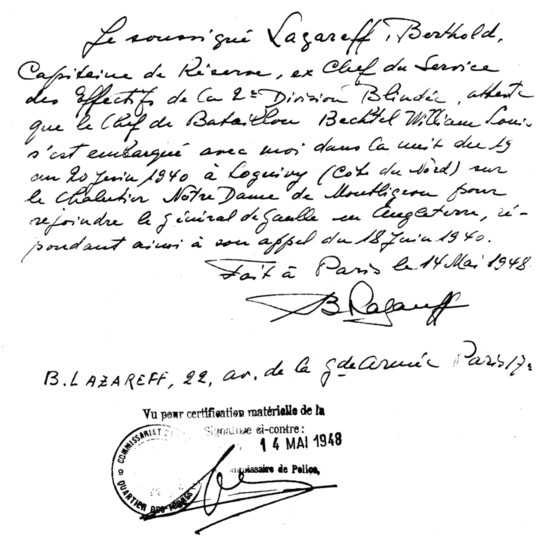 Je soussigné Lazareff, Berthold,
Capitaine de Réserve, ex Chef du Service
des Effectifs de la 2e Division Blindée, atteste
que le Chef de Bataillon Bechtel William Louis
s'est embarqué avec moi dans la nuit du 19
au 20 juin 1940 à Loguivy (Côte du Nord) sur
le chalutier Notre Dame de Montligeon pour
rejoindre le général de Gaulle en Angleterre, ré-
pondant ainsi à son appel du 18 juin 1940.
Fait à Paris le 14 Mai 1948
B Lazareff
B. LAZAREFF, 22, av. de la gde armée Paris 17e
Vu pour certification matérielle de la
Signature ci-contre:
14 MAI 1948
Commissaire de Police,
COMMISSARIAT
QUARTIER DES